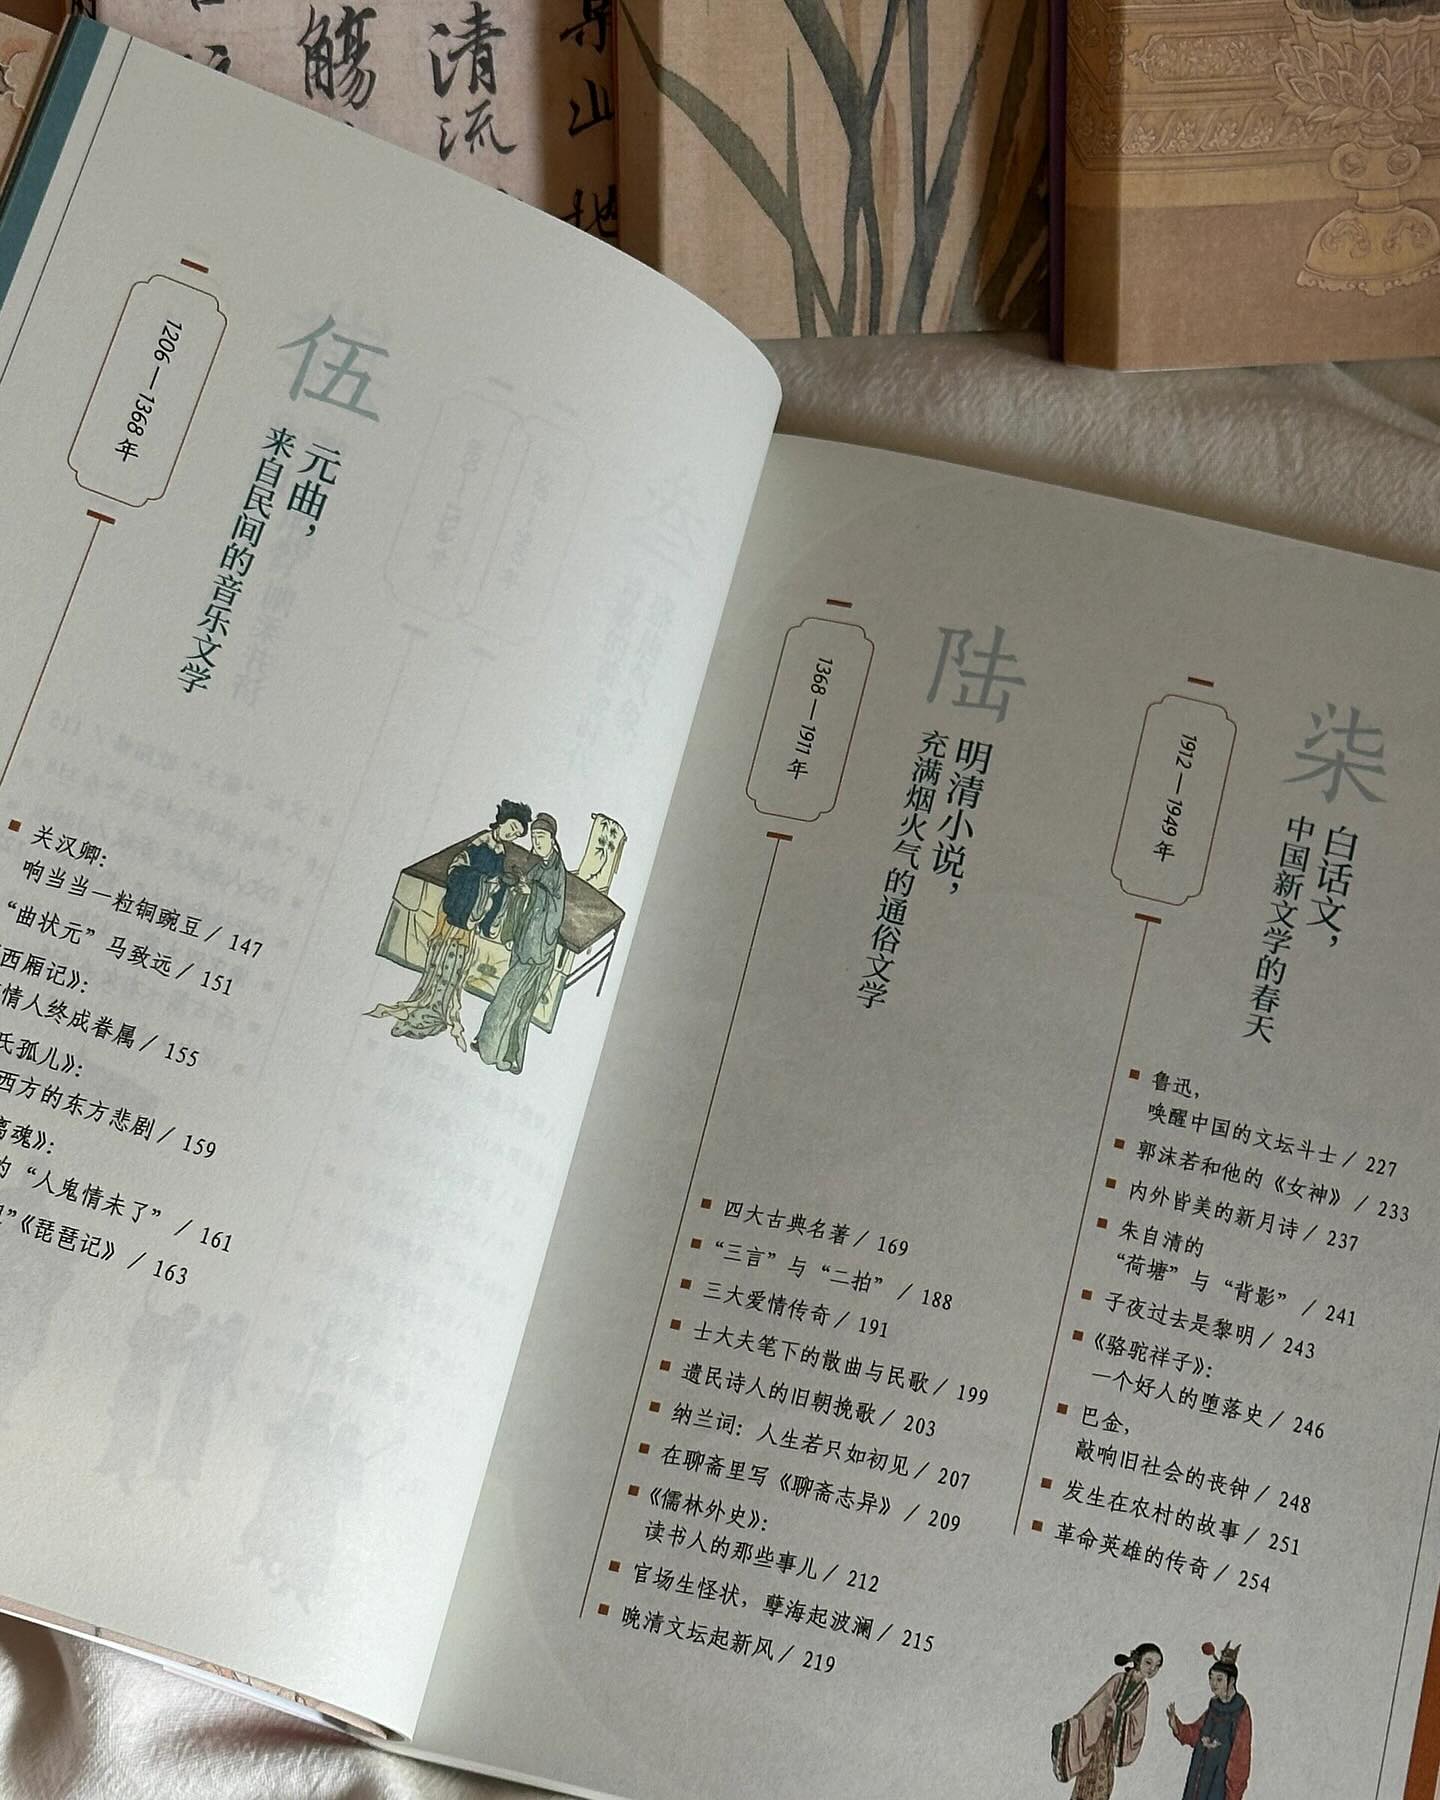 觞
清
流
山
地
伍
元曲，
来自民间的音乐文学
1206—1368年
关汉卿：
响当当一粒铜豌豆 / 147
“曲状元”马致远 / 151
西厢记》：
情人终成眷属 / 155
氏孤儿》：
西方的东方悲剧 / 159
离魂》：
的“人鬼情未了” / 161
”《琵琶记》 / 163
陆
明清小说，
充满烟火气的通俗文学
1368—1911年
四大古典名著 / 169
“三言”与“二拍” / 188
三大爱情传奇 / 191
士大夫笔下的散曲与民歌 / 199
遗民诗人的旧朝挽歌 / 203
纳兰词：人生若只如初见 / 207
在聊斋里写《聊斋志异》 / 209
《儒林外史》：
读书人的那些事儿 / 212
官场生怪状，孽海起波澜 / 215
晚清文坛起新风 / 219
柒
白话文，
中国新文学的春天
1912—1949年
鲁迅，
唤醒中国的文坛斗士 / 227
郭沫若和他的《女神》 / 233
内外皆美的新月诗 / 237
朱自清的
“荷塘”与“背影” / 241
子夜过去是黎明 / 243
《骆驼祥子》：
一个好人的堕落史 / 246
巴金，
敲响旧社会的丧钟 / 248
发生在农村的故事 / 251
革命英雄的传奇 / 254